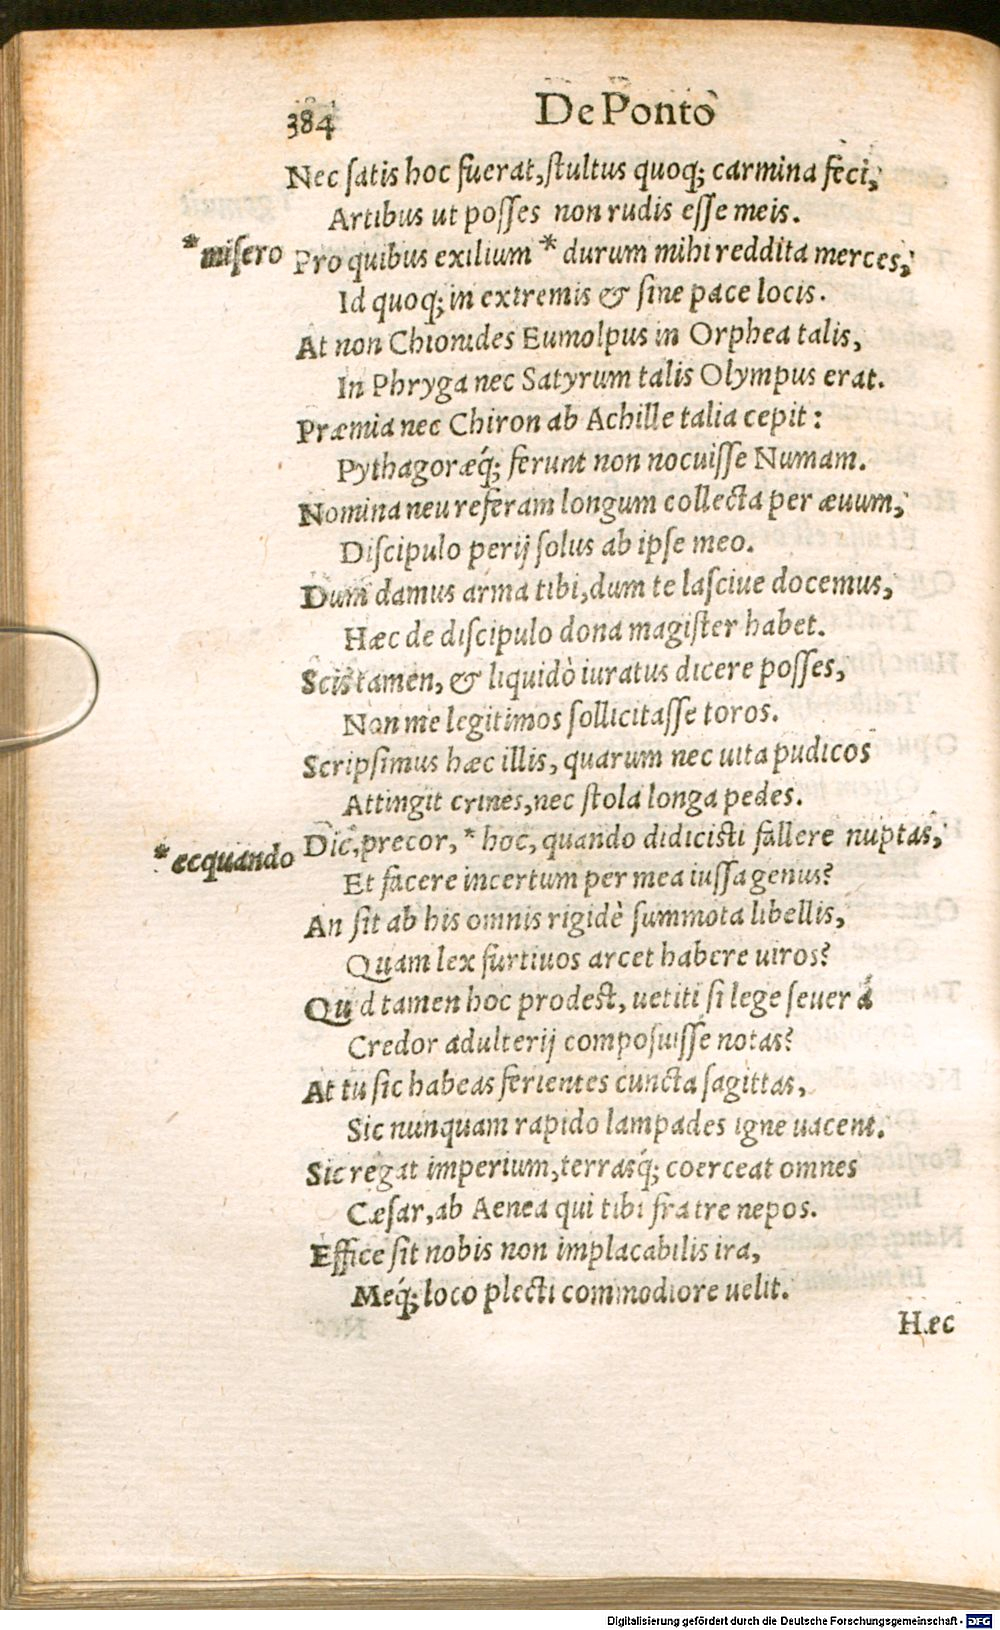 384 De Ponto
Nec satis hoc fuerat, stultus quoq; carmina feci,
Artibus ut posses non rudis esse meis.
*misero Pro quibus exilium * durum mihi reddita merces,
Id quoq; in extremis & sine pace locis.
At non Chionides Eumolpus in Orphea talis,
In Phryga nec Satyrum talis Olympus erat.
Præmia nec Chiron ab Achille talia cepit:
Pythagoræq́; ferunt non nocuisse Numam.
Nomina neu referam longum collecta per æuum,
Discipulo perij solus ab ipse meo.
Dum damus arma tibi, dum te lasciue docemus,
Hæc de discipulo dona magister habet.
Scis tamen, & liquidò iuratus dicere posses,
Non me legitimos sollicitasse toros.
Scripsimus hæc illis, quarum nec uita pudicos
Attingit crines, nec stola longa pedes.
*ecquando Dic, precor, * hoc, quando didicisti fallere nuptas,
Et facere incertum per mea iussa genus?
An sit ab his omnis rigidè summota libellis,
Quam lex furtiuos arcet habere uiros?
Qu d tamen hoc prodest, uetiti si lege seuer á
Credor adulterij composuisse notas?
At tu sic habeas ferientes cuncta sagittas,
Sic nunquam rapido lampades igne uacent.
Sic regat imperium, terrasq́; coerceat omnes
Cæsar, ab Aenea qui tibi fratre nepos.
Effice sit nobis non implacabilis ira,
Meq́; loco plecti commodiore uelit.
Hæc
Digitalisierung gefördert durch die Deutsche Forschungsgemeinschaft - DFG